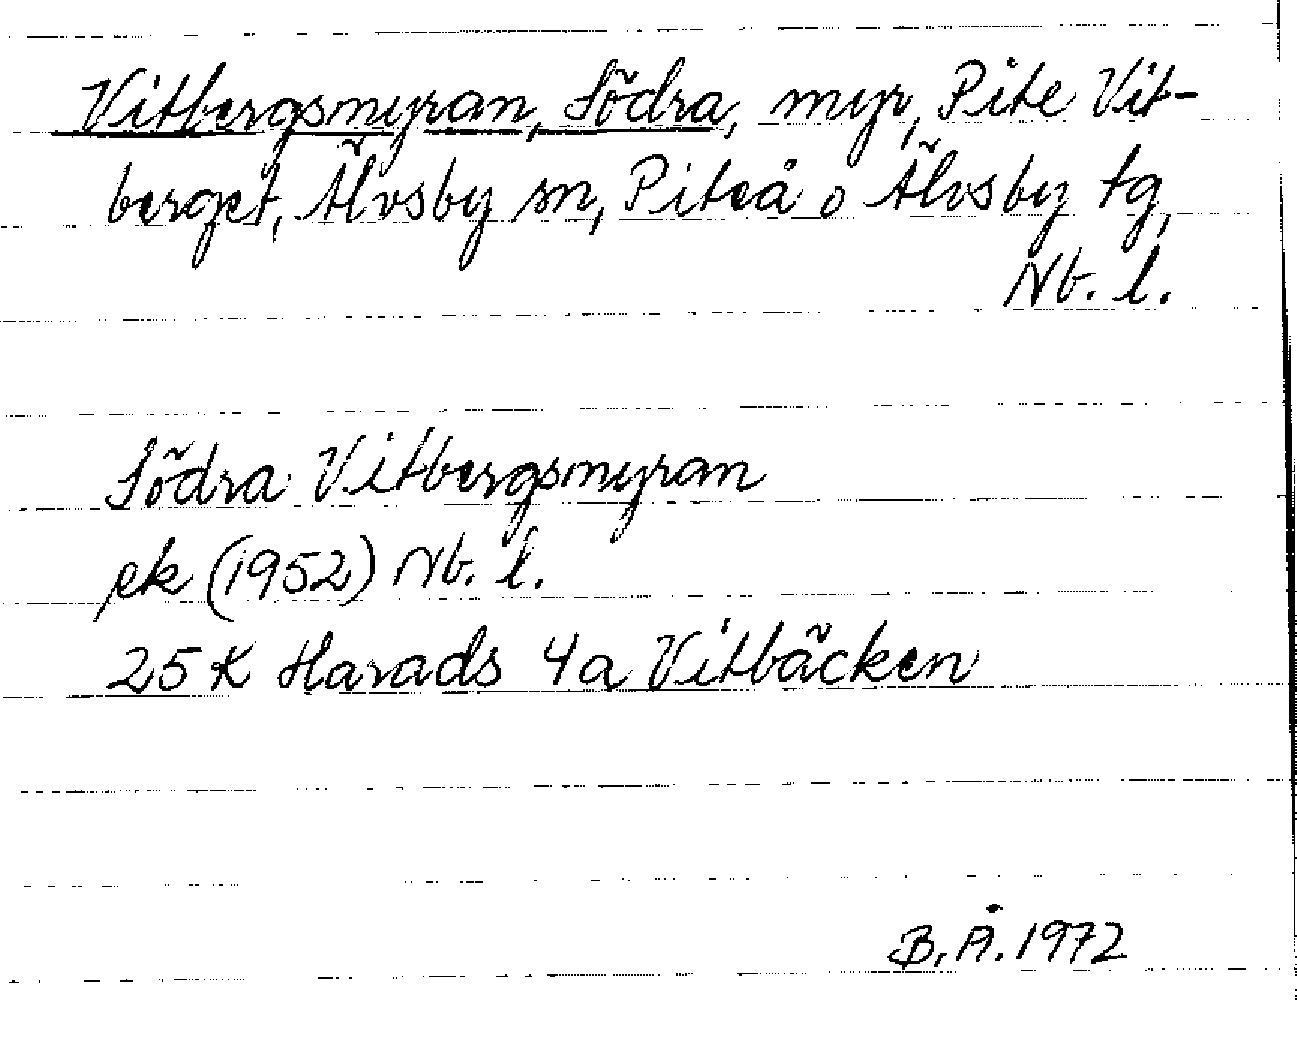 Vitbergsmyran, Södra, myr, Pite Vit-
berget, Älvsby sn, Piteå o Älvsby tg,
Nb. l.
Södra Vitbergsmyran
ek (1952) Nb. l.
25 K Harads 4a Vitbäcken
B. Å. 1972